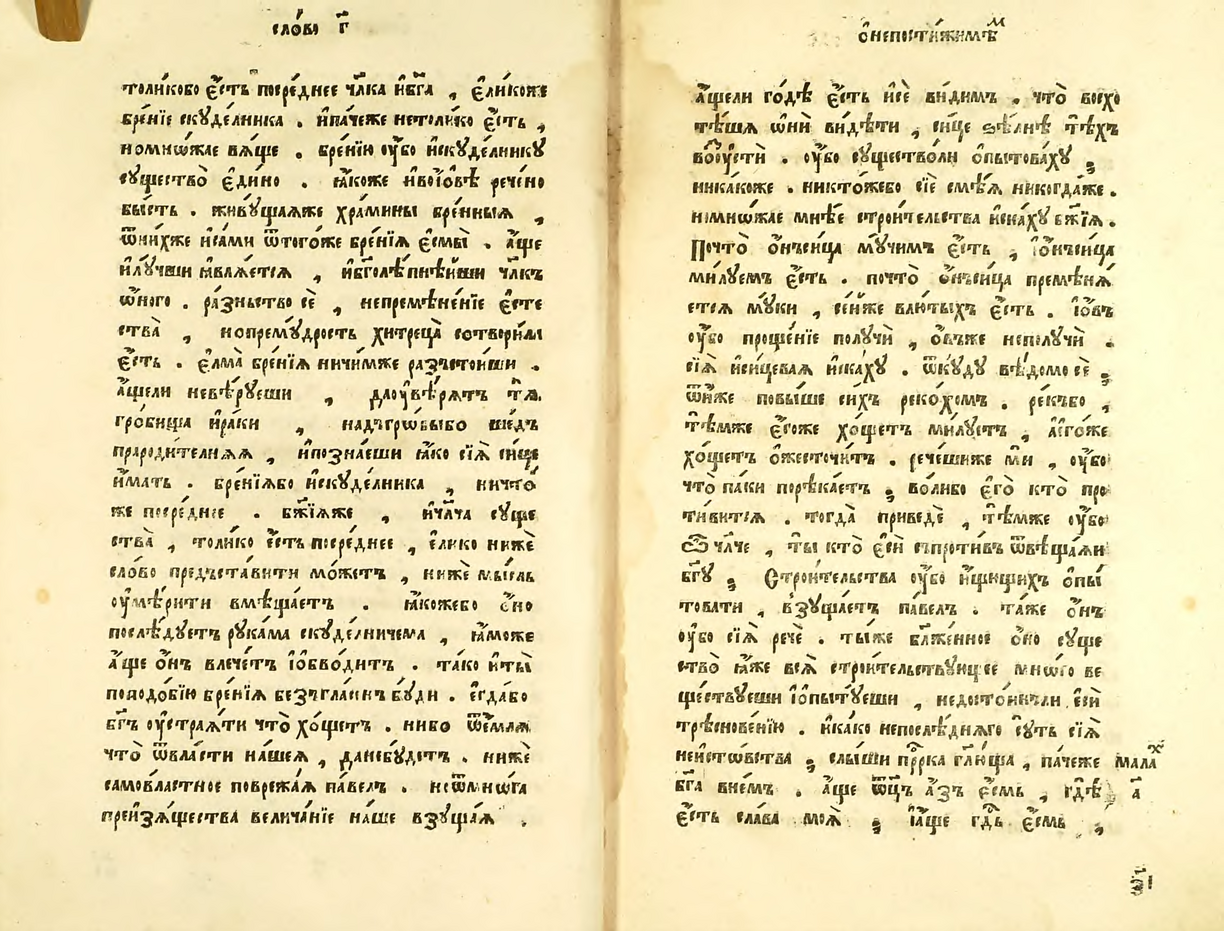 сло́во г҃
толи́ково є҆́сть посре́днее чл҃ка и҆бг҃а , є҆ли́коже
бре́нїе скуде́лника . и҆па́чеже нето́лико є҆́сть ,
номно́жае вѧ́ще . бре́нїю ѹ҆́бо и҆скуде́лнику
существо̀ є҆ди́но . ꙗ҆́коже и҆во і҆́ѡвѣ рече́но
бы́сть . живу́щаѧже хра́мины бре́нныѧ ,
ѿни́хже и҆са́ми ѿтого́же бре́нїѧ є҆смы̀ . а҆́ще
и҆лу́чши ꙗ҆влѧ́етсѧ , и҆бг҃олѣ́пнѣйши чл҃къ
ѡ҆́ного . ра́зньство сѐ , непремѣне́нїе є҆сте
ства̀ , нопрему́дрость хитреца̀ сотвори́ла
є҆́сть . є҆лма̀ бре́нїѧ ничи́мже разъстои́ши .
а҆́щели невѣ́руеши , даѹ҆вѣ́рѧтъ тѧ̀
гро́бища и҆ра́ки , надъгрѡ́быбо ше́дъ
прароди́телнѧѧ , и҆позна́еши ꙗ҆́ко сїѧ̀ си́це
и҆́мать . бре́нїѧбо и҆скуде́лника , ничто́
же посре́днее . бж҃їѧже , и҆чл҃ча суще
ства̀ , то́лико є҆́сть посре́днее , є҆ли́ко нижѐ
сло́во предъста́вити мо́жетъ , нижѐ мы́сль
ѹ҆мѣ́рити вмѣща́етъ . ꙗ҆́кожебо ѻ҆́но
послѣ́дуетъ рука́ма скуде́лничема , ꙗ҆́може
а҆́ще ѻ҆́нъ влече́тъ і҆ѡ҆бво́дитъ . та́ко и҆ты̀
поподо́бїю бре́нїѧ безъгла́сенъ бу́ди . є҆гда́бо
бг҃ъ ѹ҆стра́ѧти что̀ хо́щетъ . нибо ѿе́млѧ
что̀ ѿвла́сти на́шеѧ , данебу́детъ . нижѐ
самовла́стное поврежа́ѧ па́велъ . неѿмно́га
преи҆зѧ́щества велича́нїе на́ше взуща́ѧ .
ѻ҆непости́жимѣм
а҆́щели го́дѣ є҆́сть и҆сѐ ви́димъ . что̀ восхо
тѣ́шѧ ѡ҆нѝ ви́дѣти , си́це ѕѣ́лнѣ тѣ́хъ
во̀ѹстѝ . ѹ҆́бо существо́ли ѻ҆пы́товаху ;
ника́коже . никто́жебо сїѐ смѣ́ѧ никогда́же .
номно́жае мнѣ́е строи́тельства и҆ска́ху бж҃їѧ .
Почто̀ ѻ҆́нъсица му́чимъ є҆́сть , і҆ѻ҆́нъсица
ми́луемъ є҆́сть . почто̀ ѻ҆́нъсица премѣнѧ́
етсѧ му́ки , се́йже влю́тыхъ є҆́сть . і҆́ѡвъ
ѹ҆́бо проше́нїе получѝ , ѻ҆́въже неполучѝ .
сїѧ̀ и҆сицева́ѧ и҆ска́ху . ѿку́ду вѣ́домо сѐ ;
ѿни́же повы́ше си́хъ реко́хомъ . реќъбо ,
тѣ́мже є҆го́же хо́щетъ ми́луетъ , а҆є҆го́же
хо́щетъ ѻ҆жесточи́тъ . рече́шиже мѝ , ѹ҆́бо
что̀ па́ки порѣка́етъ ; во́либо є҆го̀ кто̀ про
ти́витсѧ . тогда̀ приведѐ , тѣ́мже ѹ҆́бо
ѽ чл҃че , ты̀ кто̀ є҆сѝ съпроти́въ ѿвѣща́ѧй
бг҃у ; Строи́тельства ѹ҆́бо и҆́щищихъ ѻ҆пы̀
товати , взуща́етъ па́велъ . та́же ѻ҆́нъ
ѹ҆́бо сїѧ̀ речѐ . ты́же бл҃же́нное ѻ҆́но суще
ство̀ ꙗ҆́же всѧ̀ строи́тельствующее мно́го ве
ще́ствуеши і҆ѻ҆пы́туеши , недосто́инъли є҆сѝ
трѣ́сновенїю . и҆ка́ко непослѣ́днѧго су́ть сїѧ̀
неи́стовства ; слы́ши пррⷪ҇ка гл҃юща , па́чеже мала хⷭ҇
бг҃а вне́мъ . а҆́ще ѻ҆ц҃ъ а҆́зъ є҆́смь , гдѣ̀ а҃
є҆́сть сла́ва моѧ̀ ; і҆а҆́ще гд҇ь є҆́смь ,